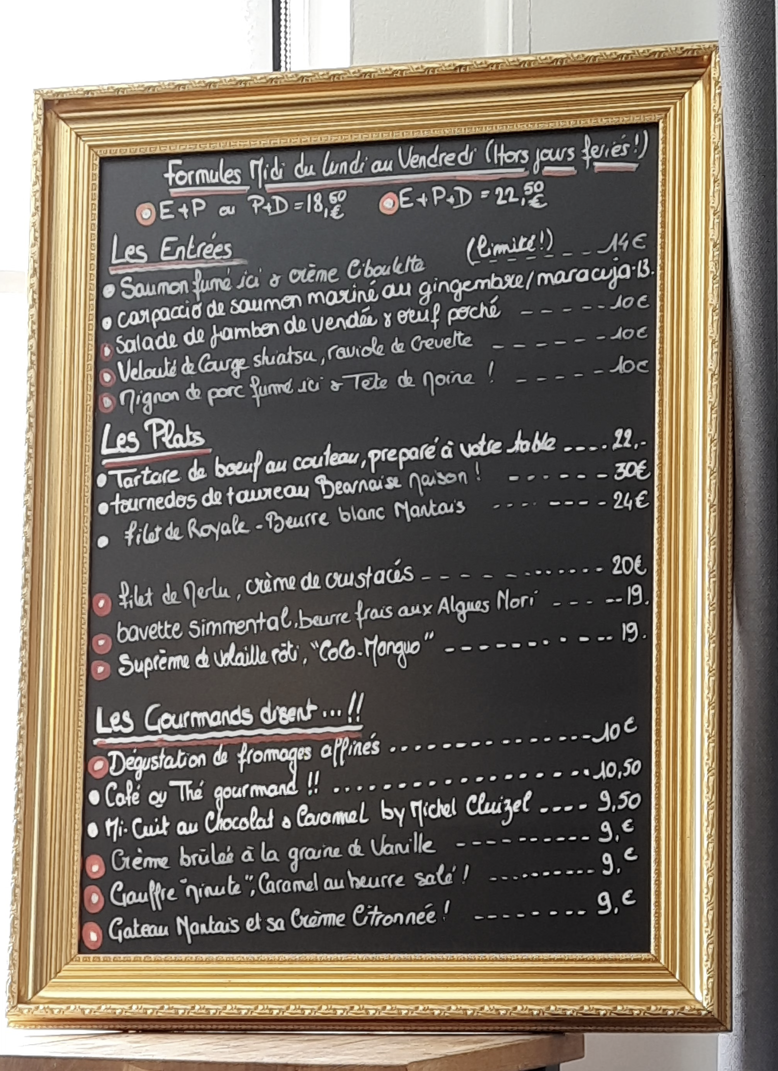 Formules Midi du lundi au Vendredi (Hors jours feriés!)
E+P ou P+D = 18,50€ E+P+D = 22,50€
Les Entrées
Saumon fumé ici & crème Ciboulette (limité!) --- 14€
Carpaccio de saumon mariné au gingembre/maracuja-13.
Salade de jambon de vendée & oeuf poché ----- 10€
Velouté de Courge shiatsu, raviole de Crevette ------ 10€
Mignon de porc fumé ici & Tete de Moine ! ------ 10€
Les Plats
Tartare de boeuf au couteau, preparé à votre table .... 22,-
tournedos de taureau Bearnaise Maison ! ------ 30€
filet de Royale - Beurre blanc Nantais ---- ---- 24€
filet de Merlu, crème de crustacés --- - ....... 20€
bavette Simmental, beurre frais aux Algues Nori --- --19.
Suprème de Volaille rôti, "CoCo-Manguo" ----------- 19.
Les Gourmands disent...!!
Dégustation de fromages affinés .................. 10€
Café ou Thé gourmand !! .................. 10,50
Mi-Cuit au Chocolat & Caramel by Michel Cluizel ---- 9,50
Crème brûlée à la graine de Vanille ---------- 9,€
Gauffre "minute", Caramel au beurre salé ! ---------- 9,€
Gateau Nantais et sa Crème Citronnée ! -------- 9,€